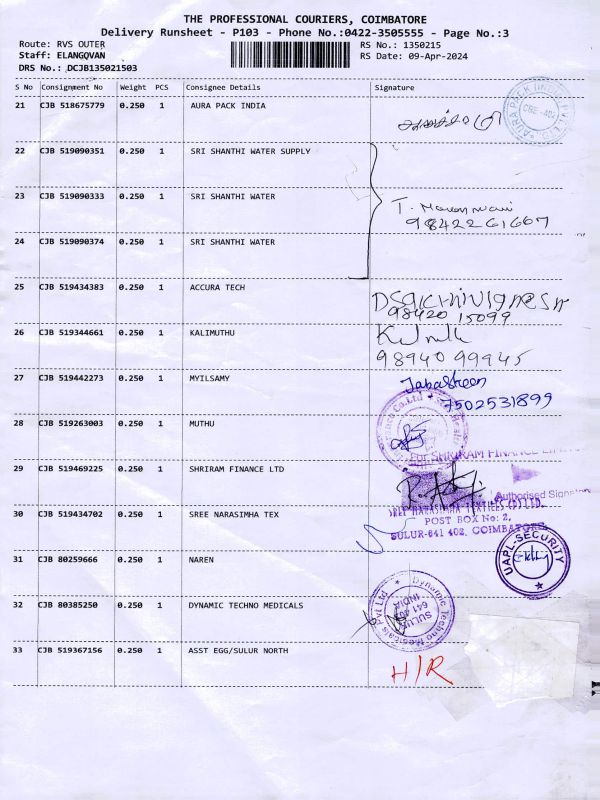 THE PROFESSIONAL COURIERS, COIMBATORE
Delivery Runsheet - P103 - Phone No.:0422-3505555 - Page No.:3
Route: RVS OUTER RS No.: 1350215
Staff: ELANGQVAN RS Date: 09-Apr-2024
DRS No.: DCJB135021503
S No Consignment No Weight PCS Consignee Details Signature
21 CJB 518675779 0.250 1 AURA PACK INDIA
22 CJB 519090351 0.250 1 SRI SHANTHI WATER SUPPLY
23 CJB 519090333 0.250 1 SRI SHANTHI WATER
T.
98422 61667
24 CJB 519090374 0.250 1 SRI SHANTHI WATER
25 CJB 519434383 0.250 1 ACCURA TECH
98420 15099
26 CJB 519344661 0.250 1 KALIMUTHU
98940 99945
27 CJB 519442273 0.250 1 MYILSAMY
7502531899
28 CJB 519263003 0.250 1 MUTHU
For SHRIRAM FINANCE
29 CJB 519469225 0.250 1 SHRIRAM FINANCE LTD
Authorised
30 CJB 519434702 0.250 1 SREE NARASIMHA TEX
SREE NARASIMHA TEXTILES (P) LTD.
POST BOX No: 2,
SULUR-641 402, COIMBATORE
31 CJB 80259666 0.250 1 NAREN
UAPL-SECURITY
32 CJB 80385250 0.250 1 DYNAMIC TECHNO MEDICALS
Dynamic Techno Medicals Pvt Ltd
SULUR
641 402
INDIA
33 CJB 519367156 0.250 1 ASST EGG/SULUR NORTH
H/R